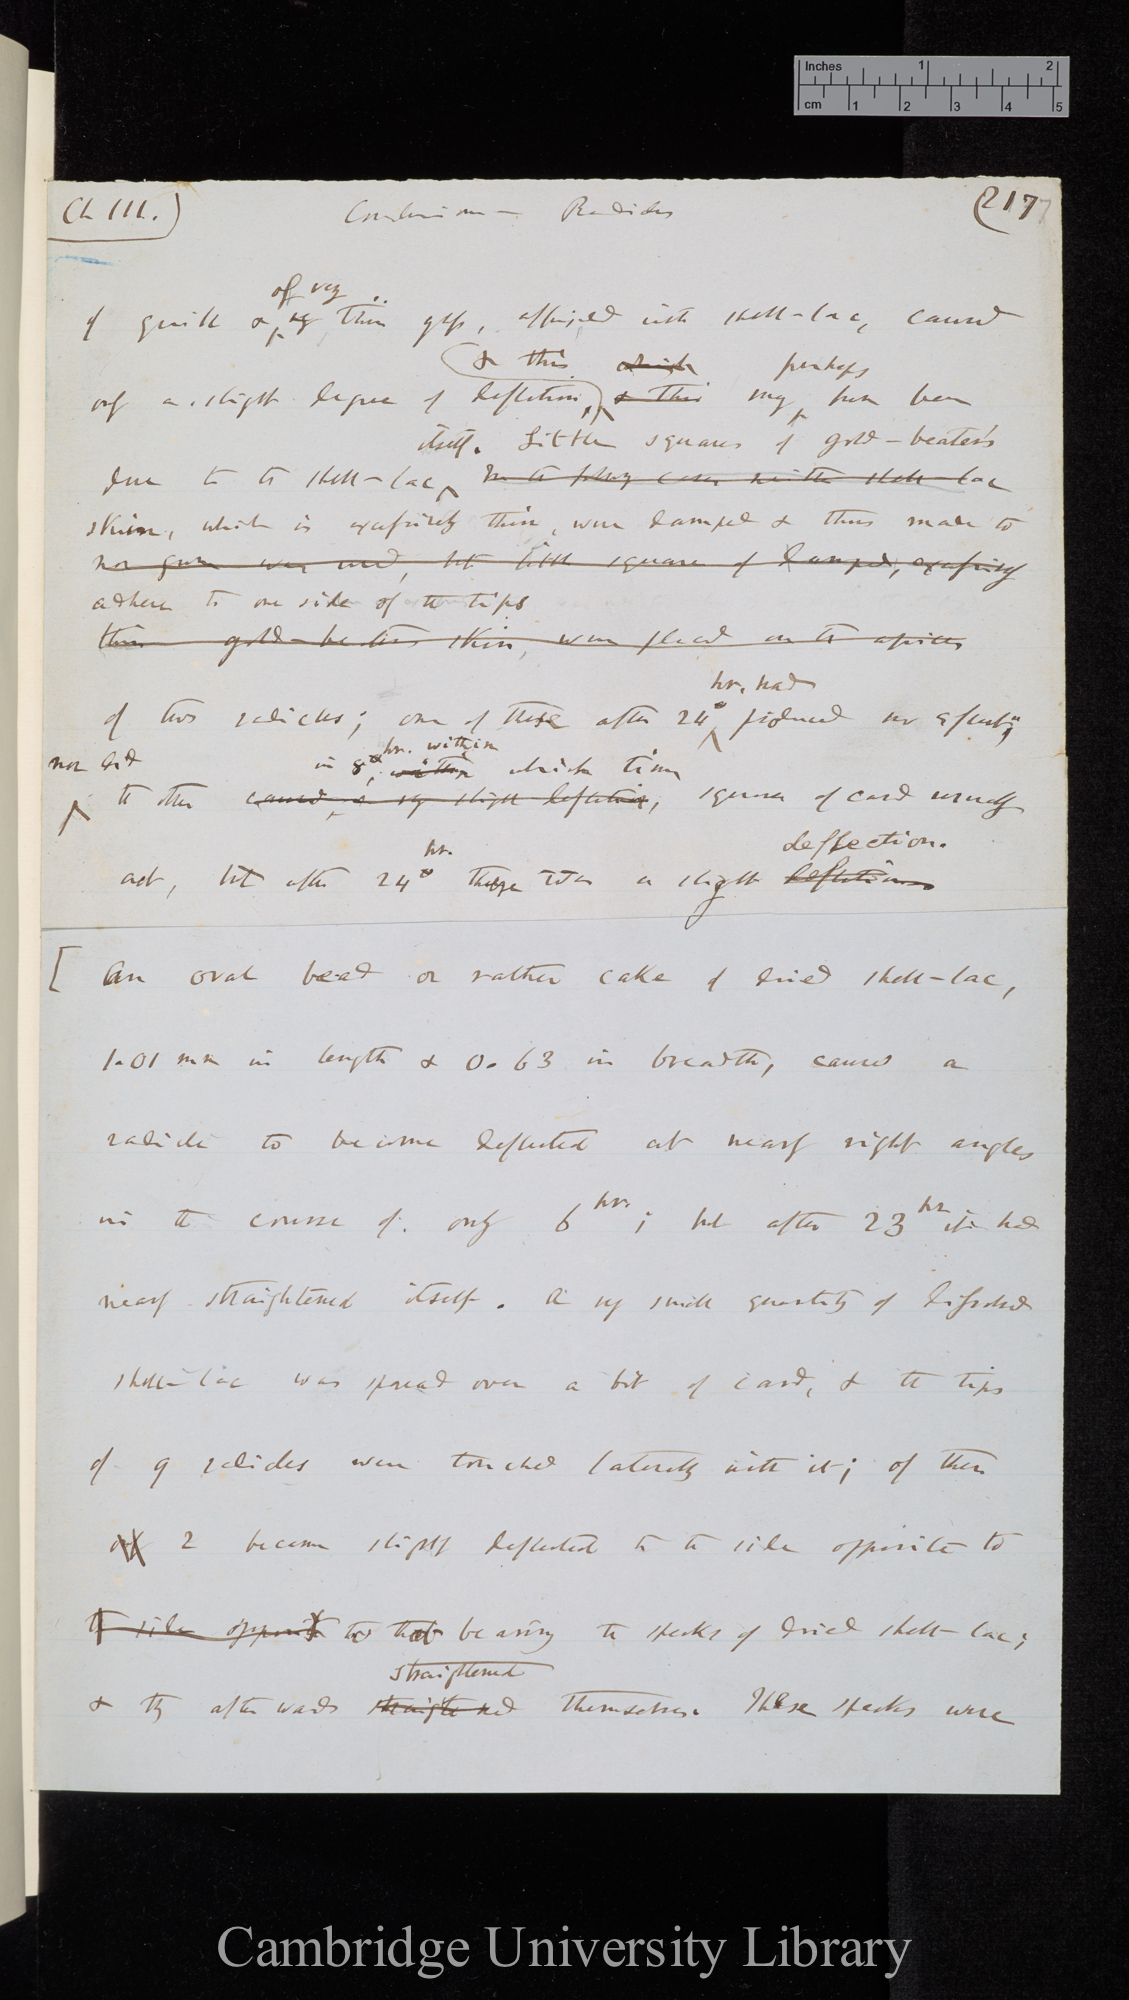 Inches 1 2
cm 1 2 3 4 5
Ch III.) Conclusion — Radicles (217
of very
of quill & thin glass, affixed with shell-lac, caused
& this which perhaps
only a slight degree of deflection, & this may have been
itself. Little squares of gold-beaters
due to the shell-lac
skin, which is exquisitely thin, were damped & thus made to
nor gum was used, but little square of damped, exquisitely
adhere to one side of the tips
thin gold-beaters skin, were placed on the apices
hr. had
of two radicles; one of these after 24 produced no effect;
nor did in 8 hr. within within which time
the other caused a very slight deflection, squares of card usually
hr. deflection.
act, but after 24 there was a slight deflection
[ An oval bead or rather cake of dried shell-lac,
1.01 mm in length & 0.63 in breadth, caused a
radicle to become deflected at nearly right angles
in the course of only 6 hr.; but after 23 hr it had
nearly straightened itself. A very small quantity of dissolved
shell-lac was spread over a bit of card, & the tips
of 9 radicles were touched laterally with it; of them
only 2 became slightly deflected to the side opposite to
the side opposite to that bearing the specks of dried shell-lac;
straightened
& they afterwards straightened themselves. These specks were
Cambridge University Library